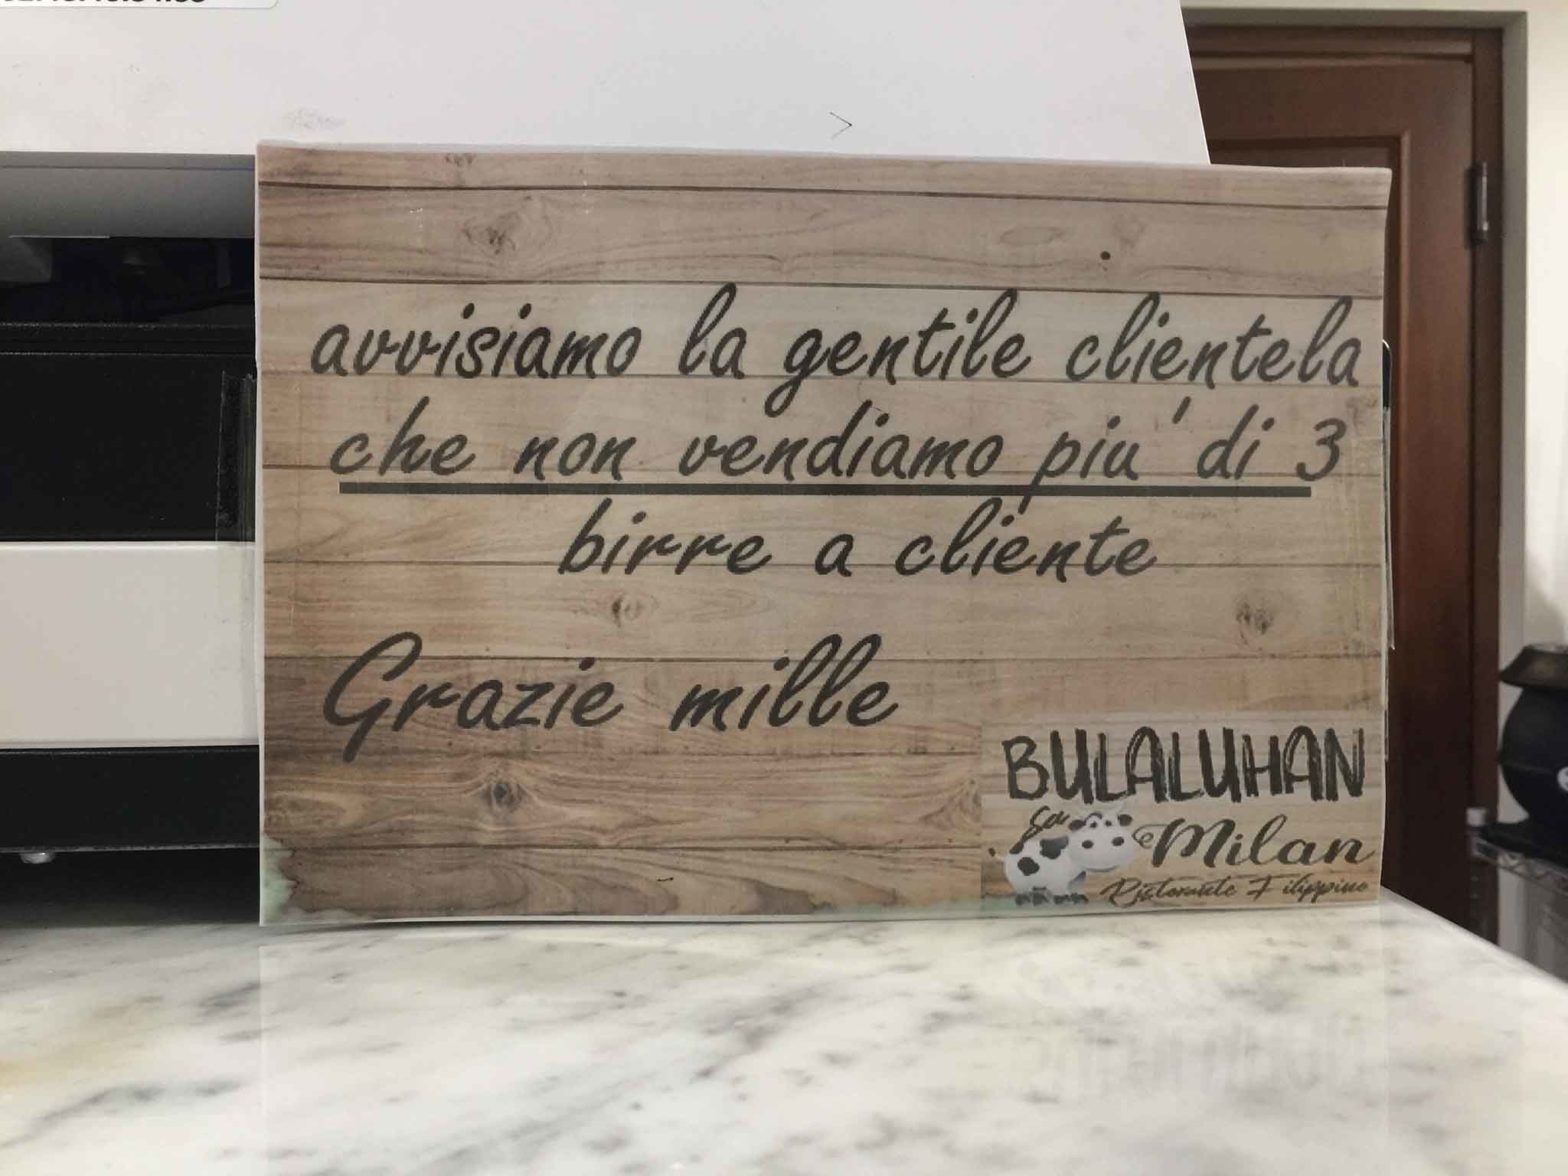 avvisiamo la gentile clientela
che non vendiamo piu' di 3
birre a cliente
Grazie mille
BULALUHAN
sa Milan
Ristorante Filippino